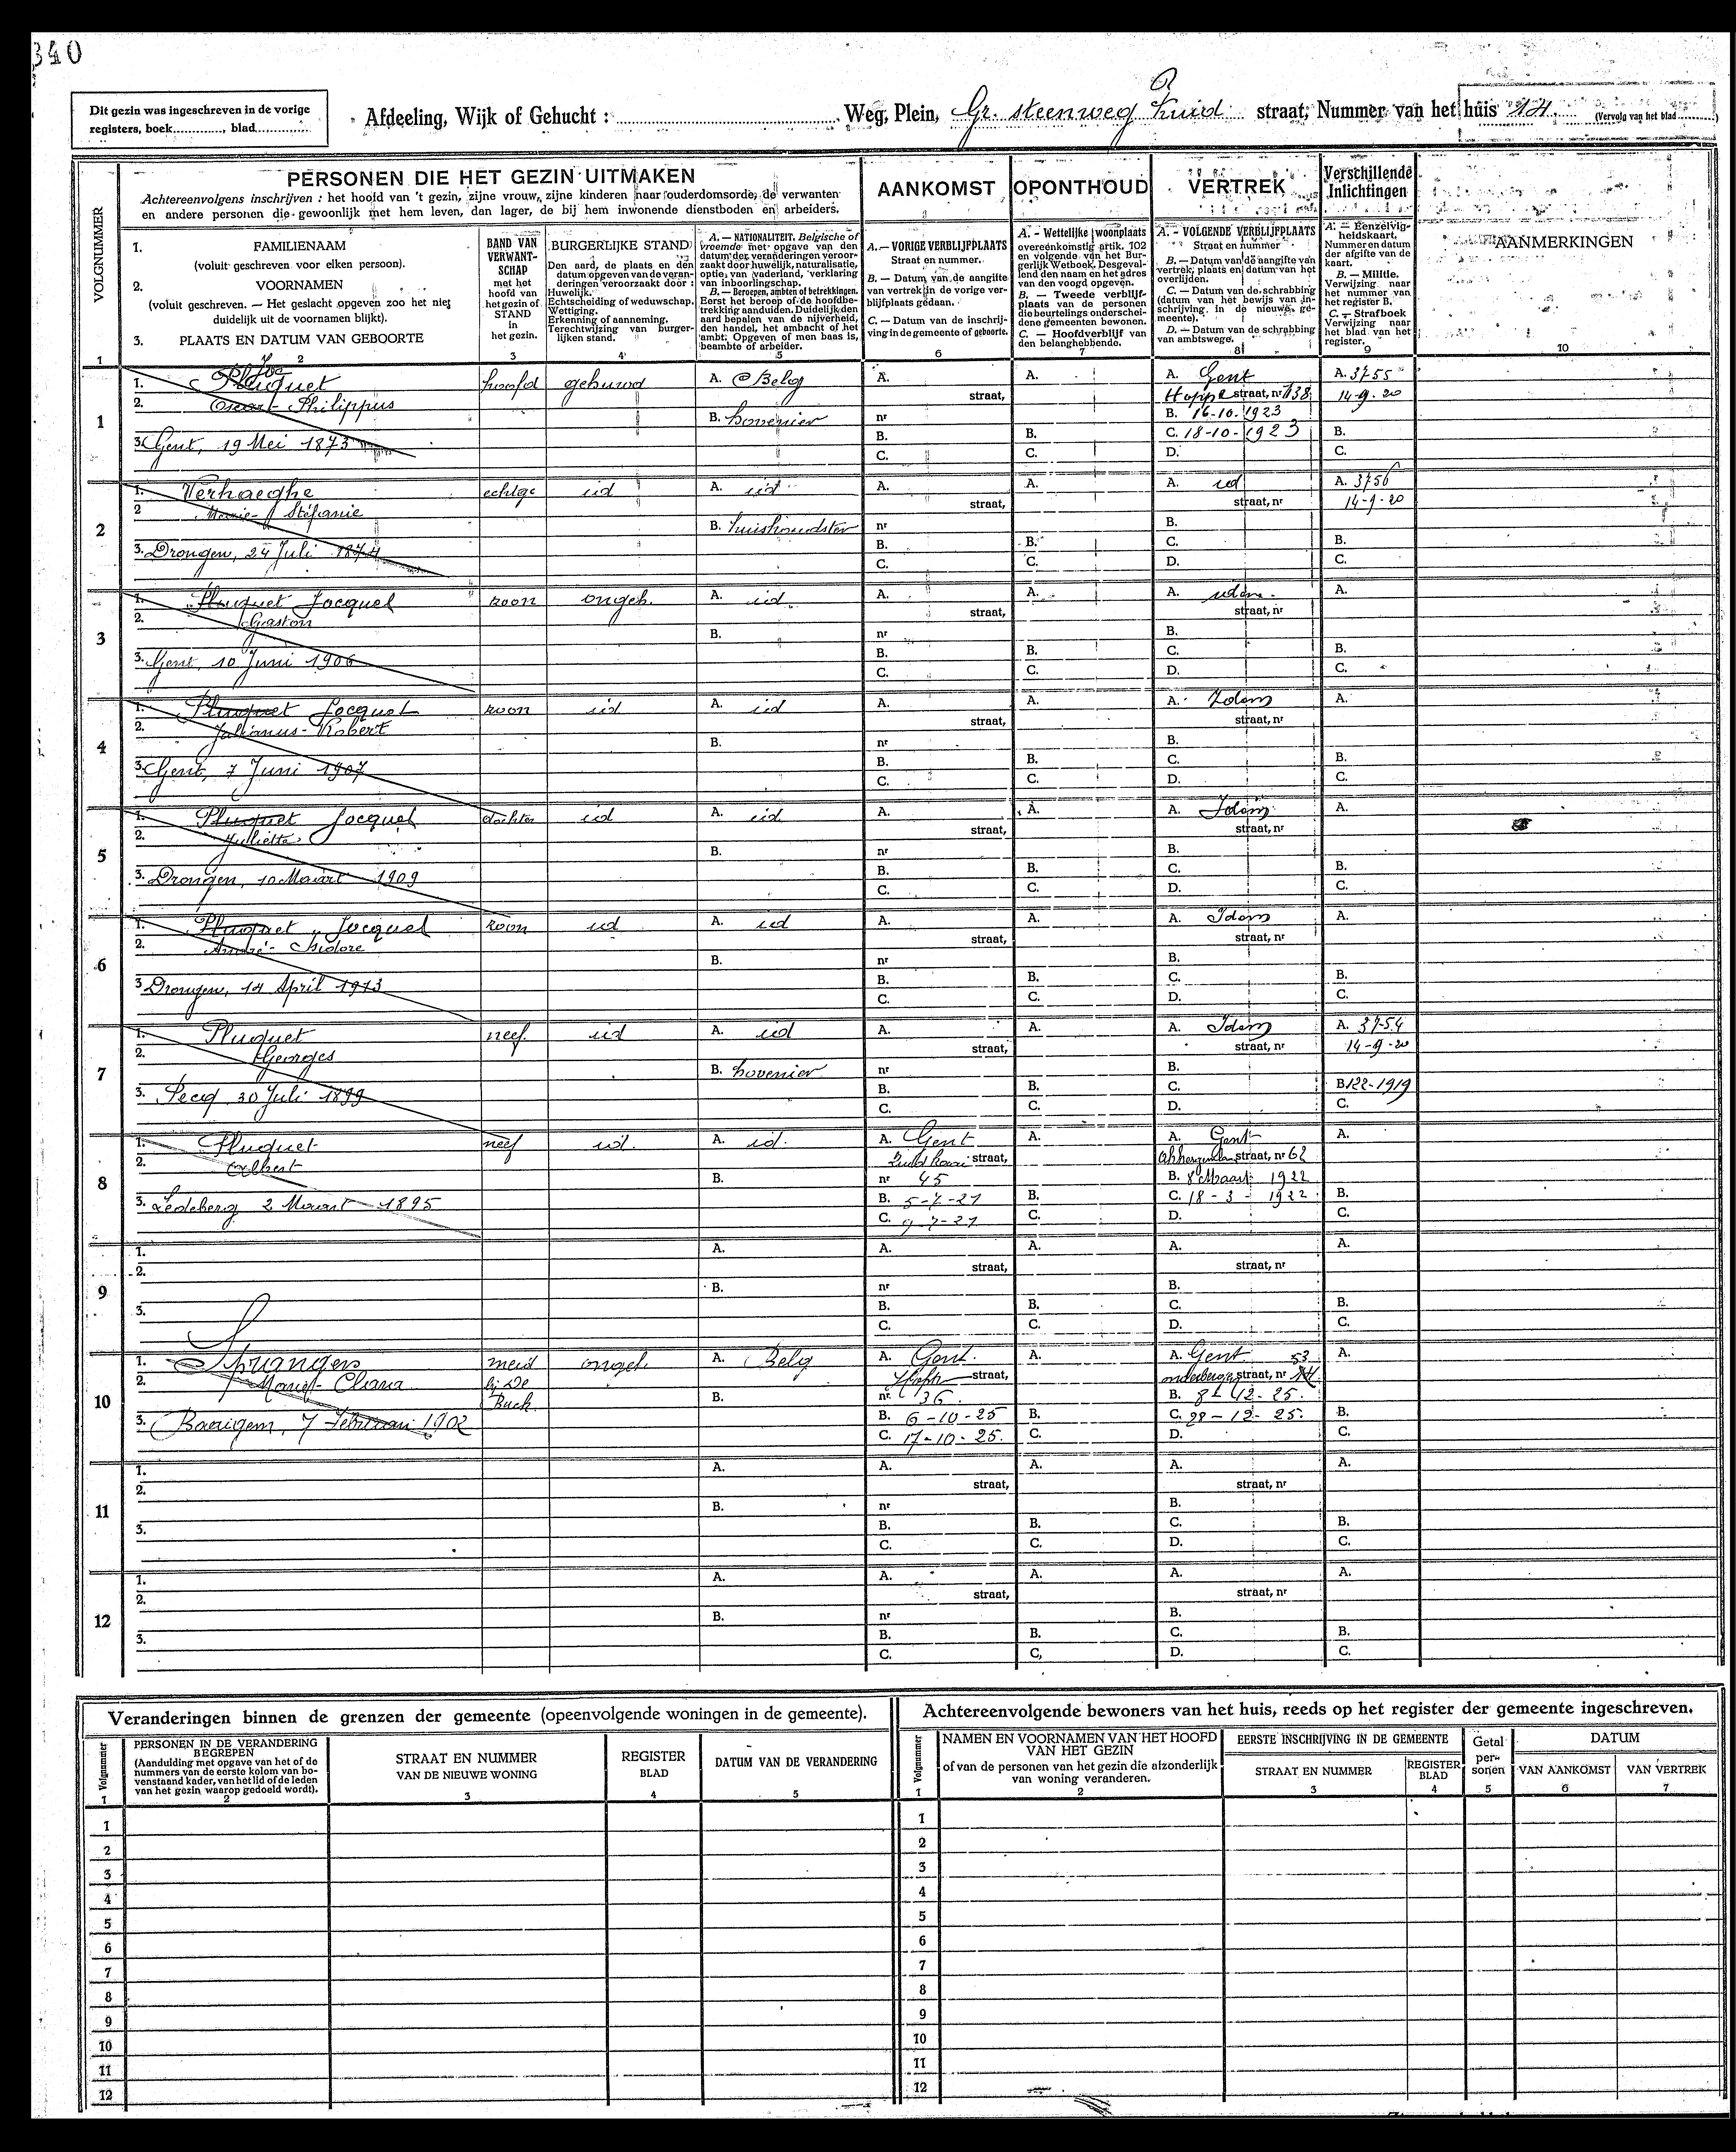 340
Dit gezin was ingeschreven in de vorige
registers, boek............, blad..............
Afdeeling, Wijk of Gehucht : Weg, Plein, Gr. steenweg Zuid straat, Nummer van het huis 14.
(Vervolg van het blad ..........)
PERSONEN DIE HET GEZIN UITMAKEN
Achtereenvolgens inschrijven : het hoofd van 't gezin, zijne vrouw, zijne kinderen naar ouderdomsorde, de verwanten
en andere personen die gewoonlijk met hem leven, dan lager, de bij hem inwonende dienstboden en arbeiders.
AANKOMST
OPONTHOUD
VERTREK
Verschillende
Inlichtingen
VOLGNUMMER
1. FAMILIENAAM
(voluit geschreven voor elken persoon).
2. VOORNAMEN
(voluit geschreven. — Het geslacht opgeven zoo het niet
duidelijk uit de voornamen blijkt).
3. PLAATS EN DATUM VAN GEBOORTE
BAND VAN
VERWANT-
SCHAP
met het
hoofd van
het gezin of
STAND
in
het gezin.
BURGERLIJKE STAND
Den aard, de plaats en den
datum opgeven van de veran-
deringen veroorzaakt door :
Huwelijk.
Echtscheiding of weduwschap.
Wettiging.
Erkenning of aanneming.
Terechtwijzing van burger-
lijken stand.
A. — NATIONALITEIT. Belgische of
vreemde met opgave van den
datum der veranderingen veroor-
zaakt door huwelijk, naturalisatie,
optie, van vaderland, verklaring
van inboorlingschap.
B. — Beroepen, ambten of betrekkingen.
Eerst het beroep of de hoofdbe-
trekking aanduiden. Duidelijk den
aard bepalen van de nijverheid,
den handel, het ambacht of het
ambt. Opgeven of men baas is,
beambte of arbeider.
A. — VORIGE VERBLIJFPLAATS
Straat en nummer.
B. — Datum van de aangifte
van vertrek in de vorige ver-
blijfplaats gedaan.
C. — Datum van de inschrij-
ving in de gemeente of geboorte.
A. - Wettelijke woonplaats
overeenkomstig artik. 102
en volgende van het Bur-
gerlijk Wetboek. Desgeval-
lend den naam en het adres
van den voogd opgeven.
B. — Tweede verblijf-
plaats van de personen
die beurtelings onderschei-
dene gemeenten bewonen.
C. — Hoofdverblijf van
den belanghebbende.
A. - VOLGENDE VERBLIJFPLAATS
Straat en nummer
B. — Datum van de aangifte van
vertrek, plaats en datum van het
overlijden.
C. — Datum van de schrabbing
(datum van het bewijs van in-
schrijving in de nieuwe ge-
meente).
D. — Datum van de schrabbing
van ambtswege.
A. — Eenzelvig-
heidskaart.
Nummer en datum
der afgifte van de
kaart.
B. — Militie.
Verwijzing naar
het nummer van
het register B.
C. — Strafboek
Verwijzing naar
het blad van het
register.
AANMERKINGEN
1 2 3 4 5 6 7 8 9 10
1
1. Pluquet hoofd gehuwd A. Belg A. A. A. Gent A. 3755
2. Oscar - Philippus straat, straat, nr 138 14-9-20
B. hovenier nr B. 16-10-1923
3. Gent, 19 Mei 1873 B. B. C. 18-10-1923 B.
C. C. D. C.
2
1. Verhaeghe echtge id A. id A. A. A. id A. 3756
2 Marie - Stéfanie straat, straat, nr 14-9-20
B. huishoudster nr B.
3. Drongen, 24 Juli 1874 B. B. C. B.
C. C. D. C.
3
1. Pluquet Jocquet zoon ongeh. A. id A. A. A. idem A.
2. Gaston straat, straat, nr
B. nr B.
3. Gent, 10 Juni 1906 B. B. C. B.
C. C. D. C.
4
1. Pluquet Jocquet zoon id A. id A. A. A. Idem A.
2. Julianus - Robert straat, straat, nr
B. nr B.
3. Gent, 7 Juni 1907 B. B. C. B.
C. C. D. C.
5
1. Pluquet Jocquet dochter id A. id A. A. A. Idem A.
2. Juliette straat, straat, nr
B. nr B.
3. Drongen, 10 Maart 1909 B. B. C. B.
C. C. D. C.
6
1. Pluquet Jocquet zoon id A. id A. A. A. Idem A.
2. André - Isidore straat, straat, nr
B. nr B.
3 Drongen, 14 April 1913 B. B. C. B.
C. C. D. C.
7
1. Pluquet neef id A. id A. A. A. Idem A. 3754
2. Georges straat, straat, nr 14-9-20
B. hovenier nr B.
3. Pecq 30 Juli 1899 B. B. C. B 122-1919
C. C. D. C.
8
1. Pluquet neef id. A. id. A. Gent A. A. Gent A.
2. Albert straat, straat, nr 62
B. nr 45 B. 8 Maart 1922
3. Ledeberg 2 Maart 1895 B. 5-7-21 B. C. 18-3-1922 B.
C. 9-7-21 C. D. C.
9
1. A. A. A. A. A.
2. straat, straat, nr
B. nr B.
3. B. B. C. B.
C. C. D. C.
10
1. Spruangers meid ongeh. A. Belg A. Gent. A. A. Gent 53 A.
2. Marie - Clara bij De straat, straat, nr
Buck. B. nr. 36 B. 8-12-25.
3. Baeigem, 7 Februari 1902 B. 6-10-25 B. C. 28-12-25. B.
C. 17-10-25. C. D. C.
11
1. A. A. A. A. A.
2. straat, straat, nr
B. nr B.
3. B. B. C. B.
C. C. D. C.
12
1. A. A. A. A. A.
2. straat, straat, nr
B. nr B.
3. B. B. C. B.
C. C, D. C.
Veranderingen binnen de grenzen der gemeente (opeenvolgende woningen in de gemeente).
Volgnummer
PERSONEN IN DE VERANDERING
BEGREPEN
(Aanduiding met opgave van het of de
nummers van de eerste kolom van bo-
venstaand kader, van het lid of de leden
van het gezin waarop gedoeld wordt).
STRAAT EN NUMMER
VAN DE NIEUWE WONING
REGISTER
BLAD
DATUM VAN DE VERANDERING
1 2 3 4 5
1
2
3
4
5
6
7
8
9
10
11
12
Achtereenvolgende bewoners van het huis, reeds op het register der gemeente ingeschreven.
Volgnummer
NAMEN EN VOORNAMEN VAN HET HOOFD
VAN HET GEZIN
of van de personen van het gezin die afzonderlijk
van woning veranderen.
EERSTE INSCHRIJVING IN DE GEMEENTE
STRAAT EN NUMMER
REGISTER
BLAD
Getal
per-
sonen
DATUM
VAN AANKOMST
VAN VERTREK
1 2 3 4 5 6 7
1
2
3
4
5
6
7
8
9
10
11
12